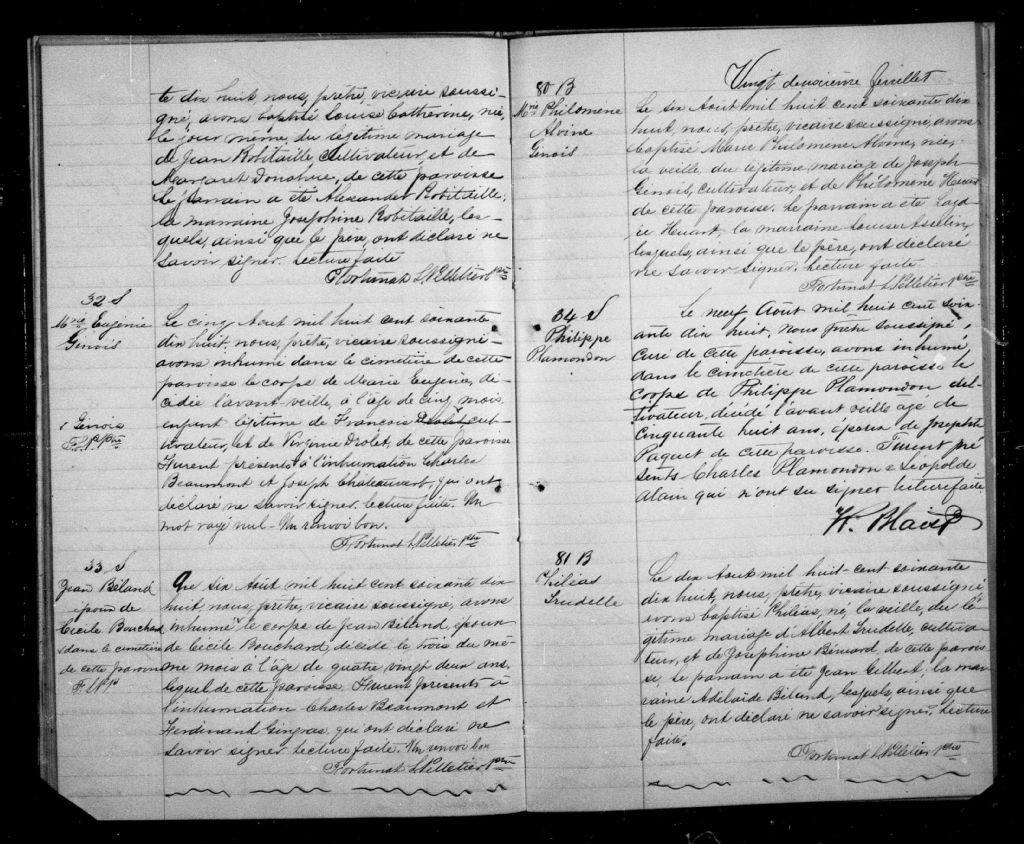 te dix huit, nous, prêtre, vicaire soussi-
gné, avons baptisé Louise Catherine, née
le jour même, du légitime mariage
de Jean Robitaille, Cultivateur, et de
Margaret Donahue, de cette paroisse
Le parrain a été Alexander Robitaille,
la marraine Josephine Robitaille, les-
quels, ainsi que le père, ont déclaré ne
savoir signer. Lecture faite
Fortunat L. Pelletier Ptre
32 S
Mrie Eugénie
Genois
Le cinq Aout mil huit cent soixante
dix huit, nous, prêtre, vicaire soussigné
avons inhumé dans le cimetière de cette
paroisse le corps de Marie Eugénie, dé-
cédée l'avant veille, à l'âge de cinq mois
enfant légitime de François Drolet, cul-
tivateur, et de Virginie Drolet, de cette paroisse
Furent présents à l'inhumation Charles
Beaumont et Joseph Chateauvert, qui ont
déclaré ne savoir signer. Lecture faite. Un
mot rayé nul - Un renvoi bon.
Fortunat L. Pelletier Ptre
1 Genois
F.L.P. Ptre
33 S
Jean Béland
époux de
Cécile Bouchard
dans le cimetière
de cette paroisse
F.L.P. P
Le six Aout mil huit cent soixante dix
huit, nous, prêtre, vicaire soussigné, avons
inhumé le corps de Jean Béland, époux
de Cécile Bouchard, décédé le trois du mê-
me mois à l'âge de quatre vingt deux ans,
lequel de cette paroisse. Furent présents à
l'inhumation Charles Beaumont et
Ferdinand Gingras, qui ont déclaré ne
savoir signer. Lecture faite. Un renvoi bon
Fortunat L. Pelletier Ptre
Vingt deuxième feuillet
80 B
Mrie Philomene
Alvine
Genois
Le six Aout mil huit cent soixante dix
huit, nous, prêtre, vicaire soussigné, avons
baptisé Marie Philomene Alvine, née,
la veille, du légitime mariage de Joseph
Genois, cultivateur, et de Philomene Huart
de cette paroisse. Le parrain a été
Huart, la marraine Louise Asselin,
lesquels, ainsi que le père, ont déclaré
ne savoir signer. Lecture faite.
Fortunat L. Pelletier Ptre
34 S
Philippe
Plamondon
Le neuf Août mil huit cent soix-
ante dix huit, Nous Prêtre soussigné,
Curé de cette paroisse, avons inhumé
dans le cimetière de cette paroisse le
corps de Philippe Plamondon cul-
tivateur, décédé l'avant veille agé de
cinquante huit ans, époux de Josephte
Paquet de cette paroisse. Furent pré
sents Charles Plamondon & Léopold
Alain qui n'ont su signer lecture faite
81 B
Philéas
Trudelle
Le dix Aout mil huit-cent soixante
dix huit, nous, prêtre, vicaire soussigné
avons baptisé Philéas, né la veille, du lé-
gitime mariage d'Albert Trudelle, cultiva-
teur, et de Josephine Bénard, de cette parois-
se, le parrain a été Jean Gilbert, la mar
raine Adelaïde Béland, lesquels, ainsi que
le père, ont déclaré ne savoir signer. Lecture
faite.
Fortunat L. Pelletier Ptre